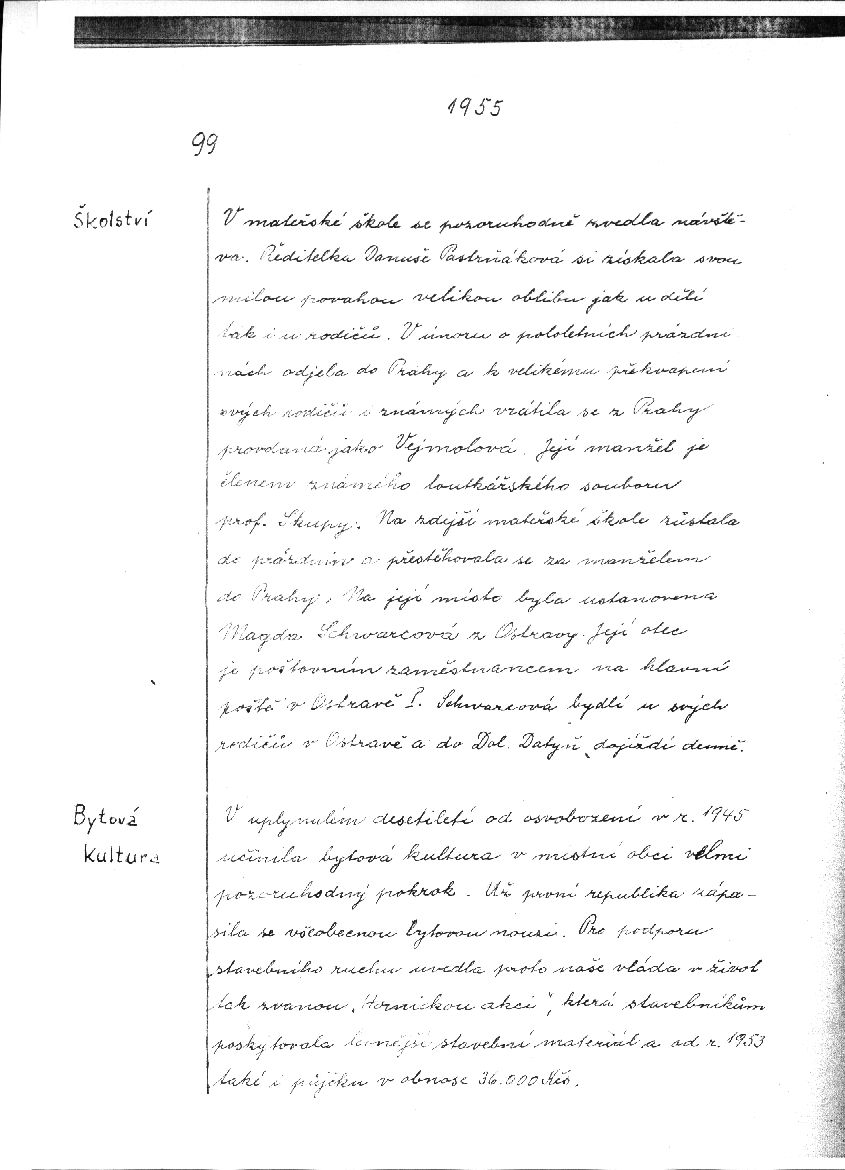 1955
99
Školství
V mateřské škole se pozoruhodně zvedla návště-
va. Ředitelka Danuše Pastrňáková si získala svou
milou povahou velikou oblibu jak u dětí
tak i u rodičů. V únoru o pololetních prázdni
nách odjela do Prahy a k velikému překvapení
svých rodičů i známých vrátila se z Prahy
provdaná jako Vejmolová. Její manžel je
členem známého loutkářského souboru
prof. Skupy. Na zdejší mateřské škole zůstala
do prázdnin a přestěhovala se za manželem
do Prahy. Na její místo byla ustanovena
Magda Schwarcová z Ostravy. Její otec
je poštovním zaměstnancem na hlavní
poště v Ostravě I. Schwarcová bydlí u svých
rodičů v Ostravě a do Dol. Datyň dojíždí denně.
Bytová
kultura
V uplynulém desetiletí od osvobození v r. 1945
učinila bytová kultura v místní obci velmi
pozoruhodný pokrok. Už první republika zápa-
sila se všeobecnou bytovou nouzí. Pro podporu
stavebního ruchu uvedla proto naše vláda v život
tak zvanou „Hornickou akci", která stavebníkům
poskytovala levnější stavební materiál a od r. 1953
také i půjčku v obnose 36.000 Kčs.